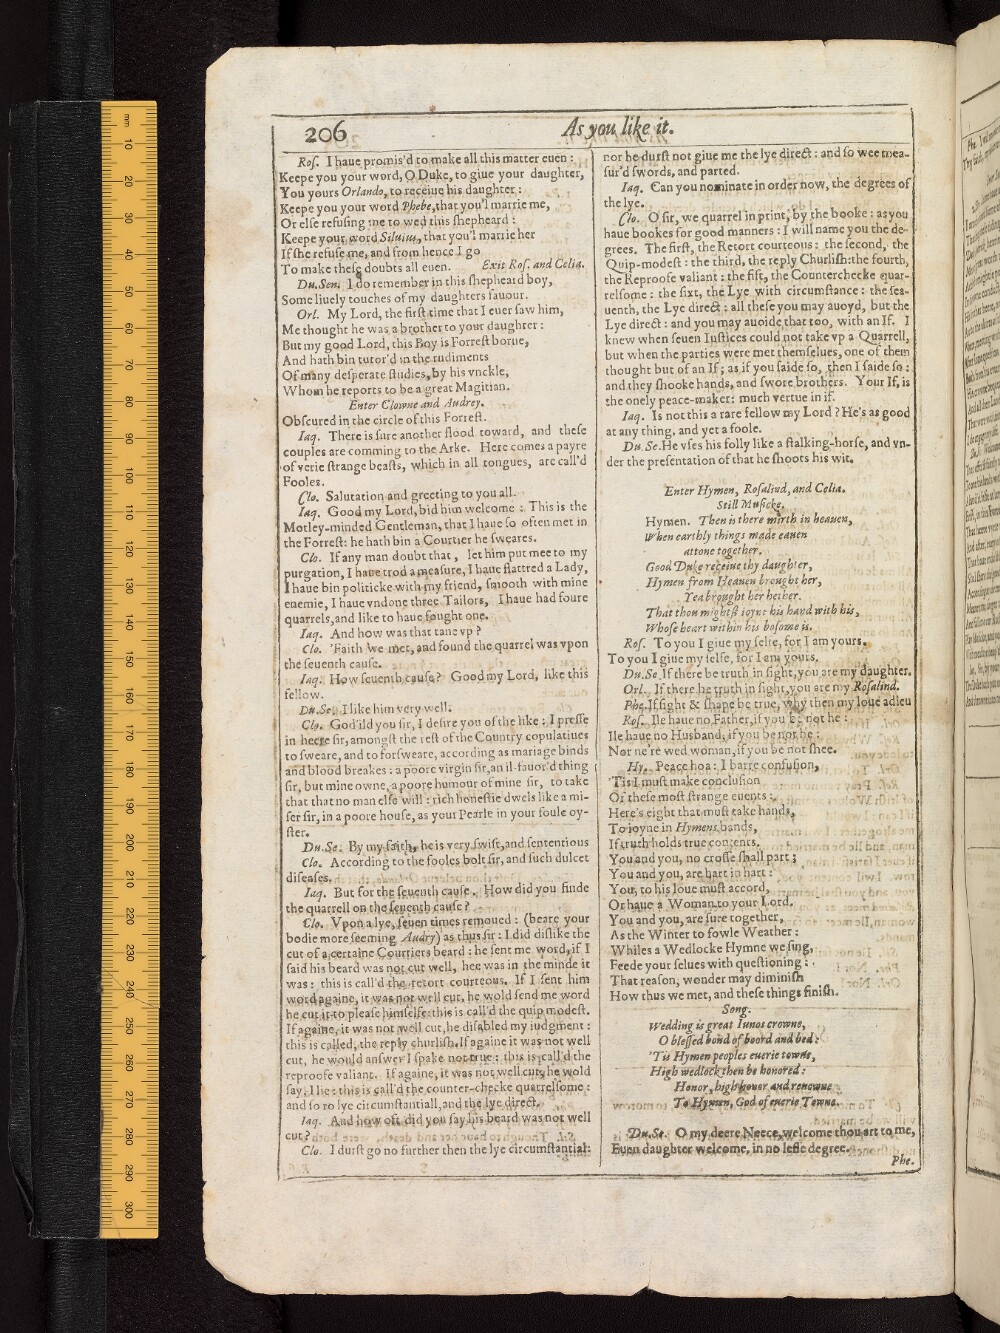 206
As you like it.
Ros. I haue promis'd to make all this matter euen:
Keepe you your word, O Duke, to giue your daughter,
You yours Orlando, to receiue his daughter:
Keepe you your word Phebe, that you'l marrie me,
Or else refusing me to wed this shepheard:
Keepe your word Siluius, that you'l marrie her
If she refuse me, and from hence I go
To make these doubts all euen. Exit Ros. and Celia.
Du.Sen. I do remember in this shepheard boy,
Some liuely touches of my daughters fauour.
Orl. My Lord, the first time that I euer saw him,
Me thought he was a brother to your daughrer:
But my good Lord, this Boy is Forrest borne,
And hath bin tutor'd in the rudiments
Of many desperate studies, by his vnckle,
Whom he reports to be a great Magitian.
Enter Clowne and Audrey.
Obscured in the circle of this Forrest.
Iaq. There is sure another flood toward, and these
couples are comming to the Arke. Here comes a payre
of verie strange beasts, which in all tongues, are call'd
Fooles.
Clo. Salutation and greeting to you all.
Iaq. Good my Lord, bid him welcome: This is the
Motley-minded Gentleman, that I haue so often met in
the Forrest: he hath bin a Courtier he sweares.
Clo. If any man doubt that, let him put mee to my
purgation, I haue trod a measure, I haue flattred a Lady,
I haue bin politicke with my friend, smooth with mine
enemie, I haue vndone three Tailors, I haue had foure
quarrels, and like to haue fought one.
Iaq. And how was that tane vp?
Clo. 'Faith we met, and found the quarrel was vpon
the seuenth cause.
Iaq. How seuenth cause? Good my Lord, like this
fellow.
Du.Se. I like him very well.
Clo. God'ild you sir, I desire you of the like: I presse
in heere sir, amongst the rest of the Country copulatiues
to sweare, and to forsweare, according as mariage binds
and blood breakes: a poore virgin sir, an il-fauor'd thing
sir, but mine owne, a poore humour of mine sir, to take
that that no man else will: rich honestie dwels like a mi-
ser sir, in a poore house, as your Pearle in your foule oy-
ster.
Du.Se. By my faith, he is very swift, and sententious
Clo. According to the fooles bolt sir, and such dulcet
diseases.
Iaq. But for the seuenth cause. How did you finde
the quarrell on the seuenth cause?
Clo. Vpon a lye, seuen times remoued: (beare your
bodie more seeming Audry) as thus sir: I did dislike the
cut of a certaine Courtiers beard: he sent me word, if I
said his beard was not cut well, hee was in the minde it
was: this is call'd the retort courteous. If I sent him
word againe, it was not well cut, he wold send me word
he cut it to please himselfe: this is call'd the quip modest.
If againe, it was not well cut, he disabled my iudgment:
this is called, the reply churlish. If againe it was not well
cut, he would answer I spake not true: this is call'd the
reproofe valiant. If againe, it was not well cut, he wold
say, I lie: this is call'd the counter-checke quarrelsome:
and so ro lye circumstantiall, and the lye direct.
Iaq. And how oft did you say his beard was not well
cut?
Clo. I durst go no further then the lye circumstantial:
nor he durst not giue me the lye direct: and so wee mea-
sur'd swords, and parted.
Iaq. Can you nominate in order now, the degrees of
the lye.
Clo. O sir, we quarrel in print, by the booke: as you
haue bookes for good manners: I will name you the de-
grees. The first, the Retort courteous: the second, the
Quip-modest: the third, the reply Churlish: the fourth,
the Reproofe valiant: the fift, the Counterchecke quar-
relsome: the sixt, the Lye with circumstance: the sea-
uenth, the Lye direct: all these you may auoyd, but the
Lye direct: and you may auoide that too, with an If. I
knew when seuen Iustices could not take vp a Quarrell,
but when the parties were met themselues, one of them
thought but of an If; as if you saide so, then I saide so:
and they shooke hands, and swore brothers. Your If, is
the onely peace-maker: much vertue in if.
Iaq. Is not this a rare fellow my Lord? He's as good
at any thing, and yet a foole.
Du.Se. He vses his folly like a stalking-horse, and vn-
der the presentation of that he shoots his wit.
Enter Hymen, Rosalind, and Celia.
Still Musicke.
Hymen. Then is there mirth in heauen,
When earthly things made eauen
attone together.
Good Duke receiue thy daughter,
Hymen from Heauen brought her,
Yea brought her hether.
That thou mightst ioyne his hand with his,
Whose heart within his bosome is.
Ros. To you I giue my selfe, for I am yours.
To you I giue my selfe, for I am yours.
Du.Se. If there be truth in sight, you are my daughter.
Orl. If there be truth in sight, you are my Rosalind.
Phe. If sight & shape be true, why then my loue adieu
Ros. Ile haue no Father, if you be not he:
Ile haue no Husband, if you be not he:
Nor ne're wed woman, if you be not shee.
Hy. Peace hoa: I barre confusion,
'Tis I must make conclusion
Of these most strange euents:
Here's eight that must take hands,
To ioyne in Hymens bands,
If truth holds true contents.
You and you, no crosse shall part;
You and you, are hart in hart:
You, to his loue must accord,
Or haue a Woman to your Lord.
You and you, are sure together,
As the Winter to fowle Weather:
Whiles a Wedlocke Hymne we sing,
Feede your selues with questioning:
That reason, wonder may diminish
How thus we met, and these things finish.
Song.
Wedding is great Iunos crowne,
O blessed bond of boord and bed:
'Tis Hymen peoples euerie towne,
High wedlock then be honored:
Honor, high honor and renowne
To Hymen, God of euerie Towne.
Du.Se. O my deere Neece, welcome thou art to me,
Euen daughter welcome, in no lesse degree.
Phe.